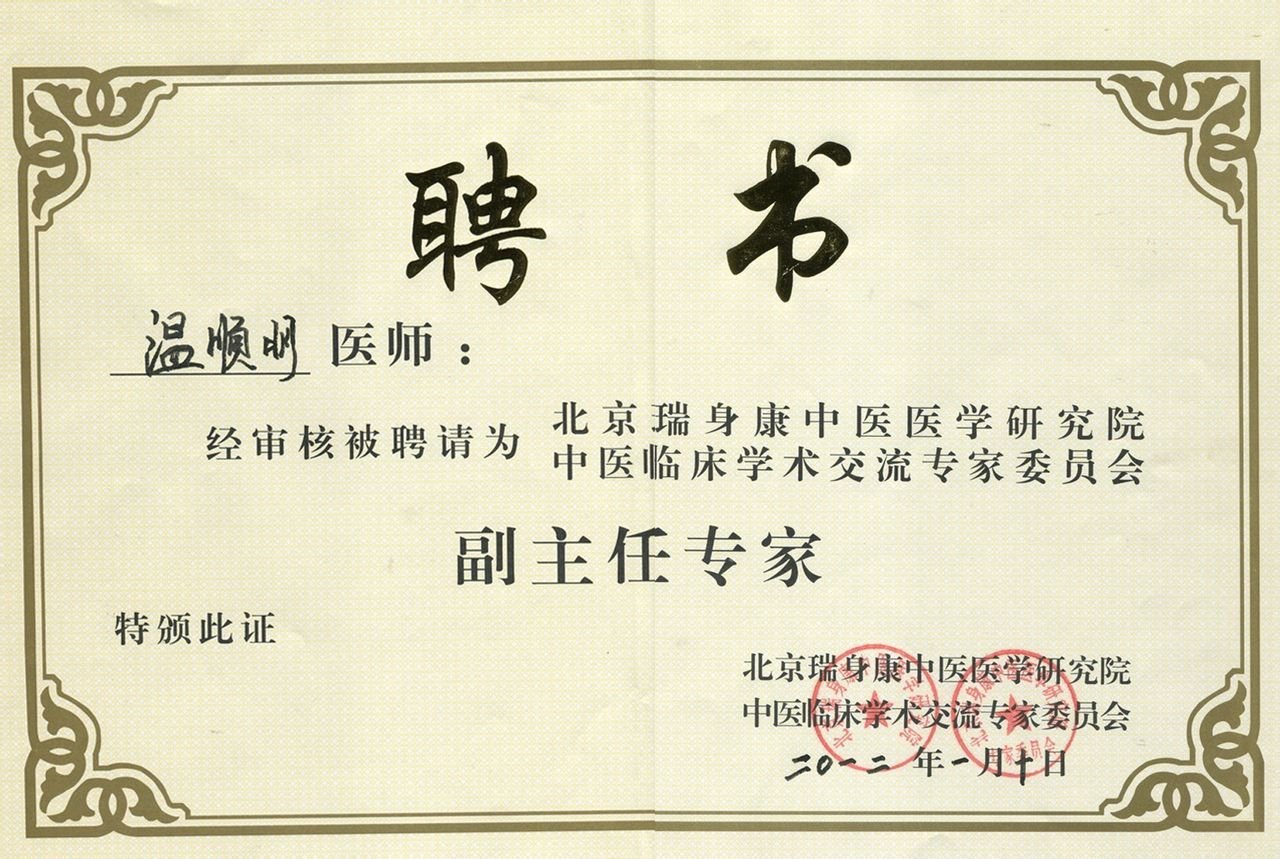 聘书
温顺明 医师：
经审核被聘请为
北京瑞身康中医医学研究院
中医临床学术交流专家委员会
副主任专家
特颁此证
北京瑞身康中医医学研究院
中医临床学术交流专家委员会
二〇一二年一月十日
北京瑞身康中医医学研究院
专家委员会